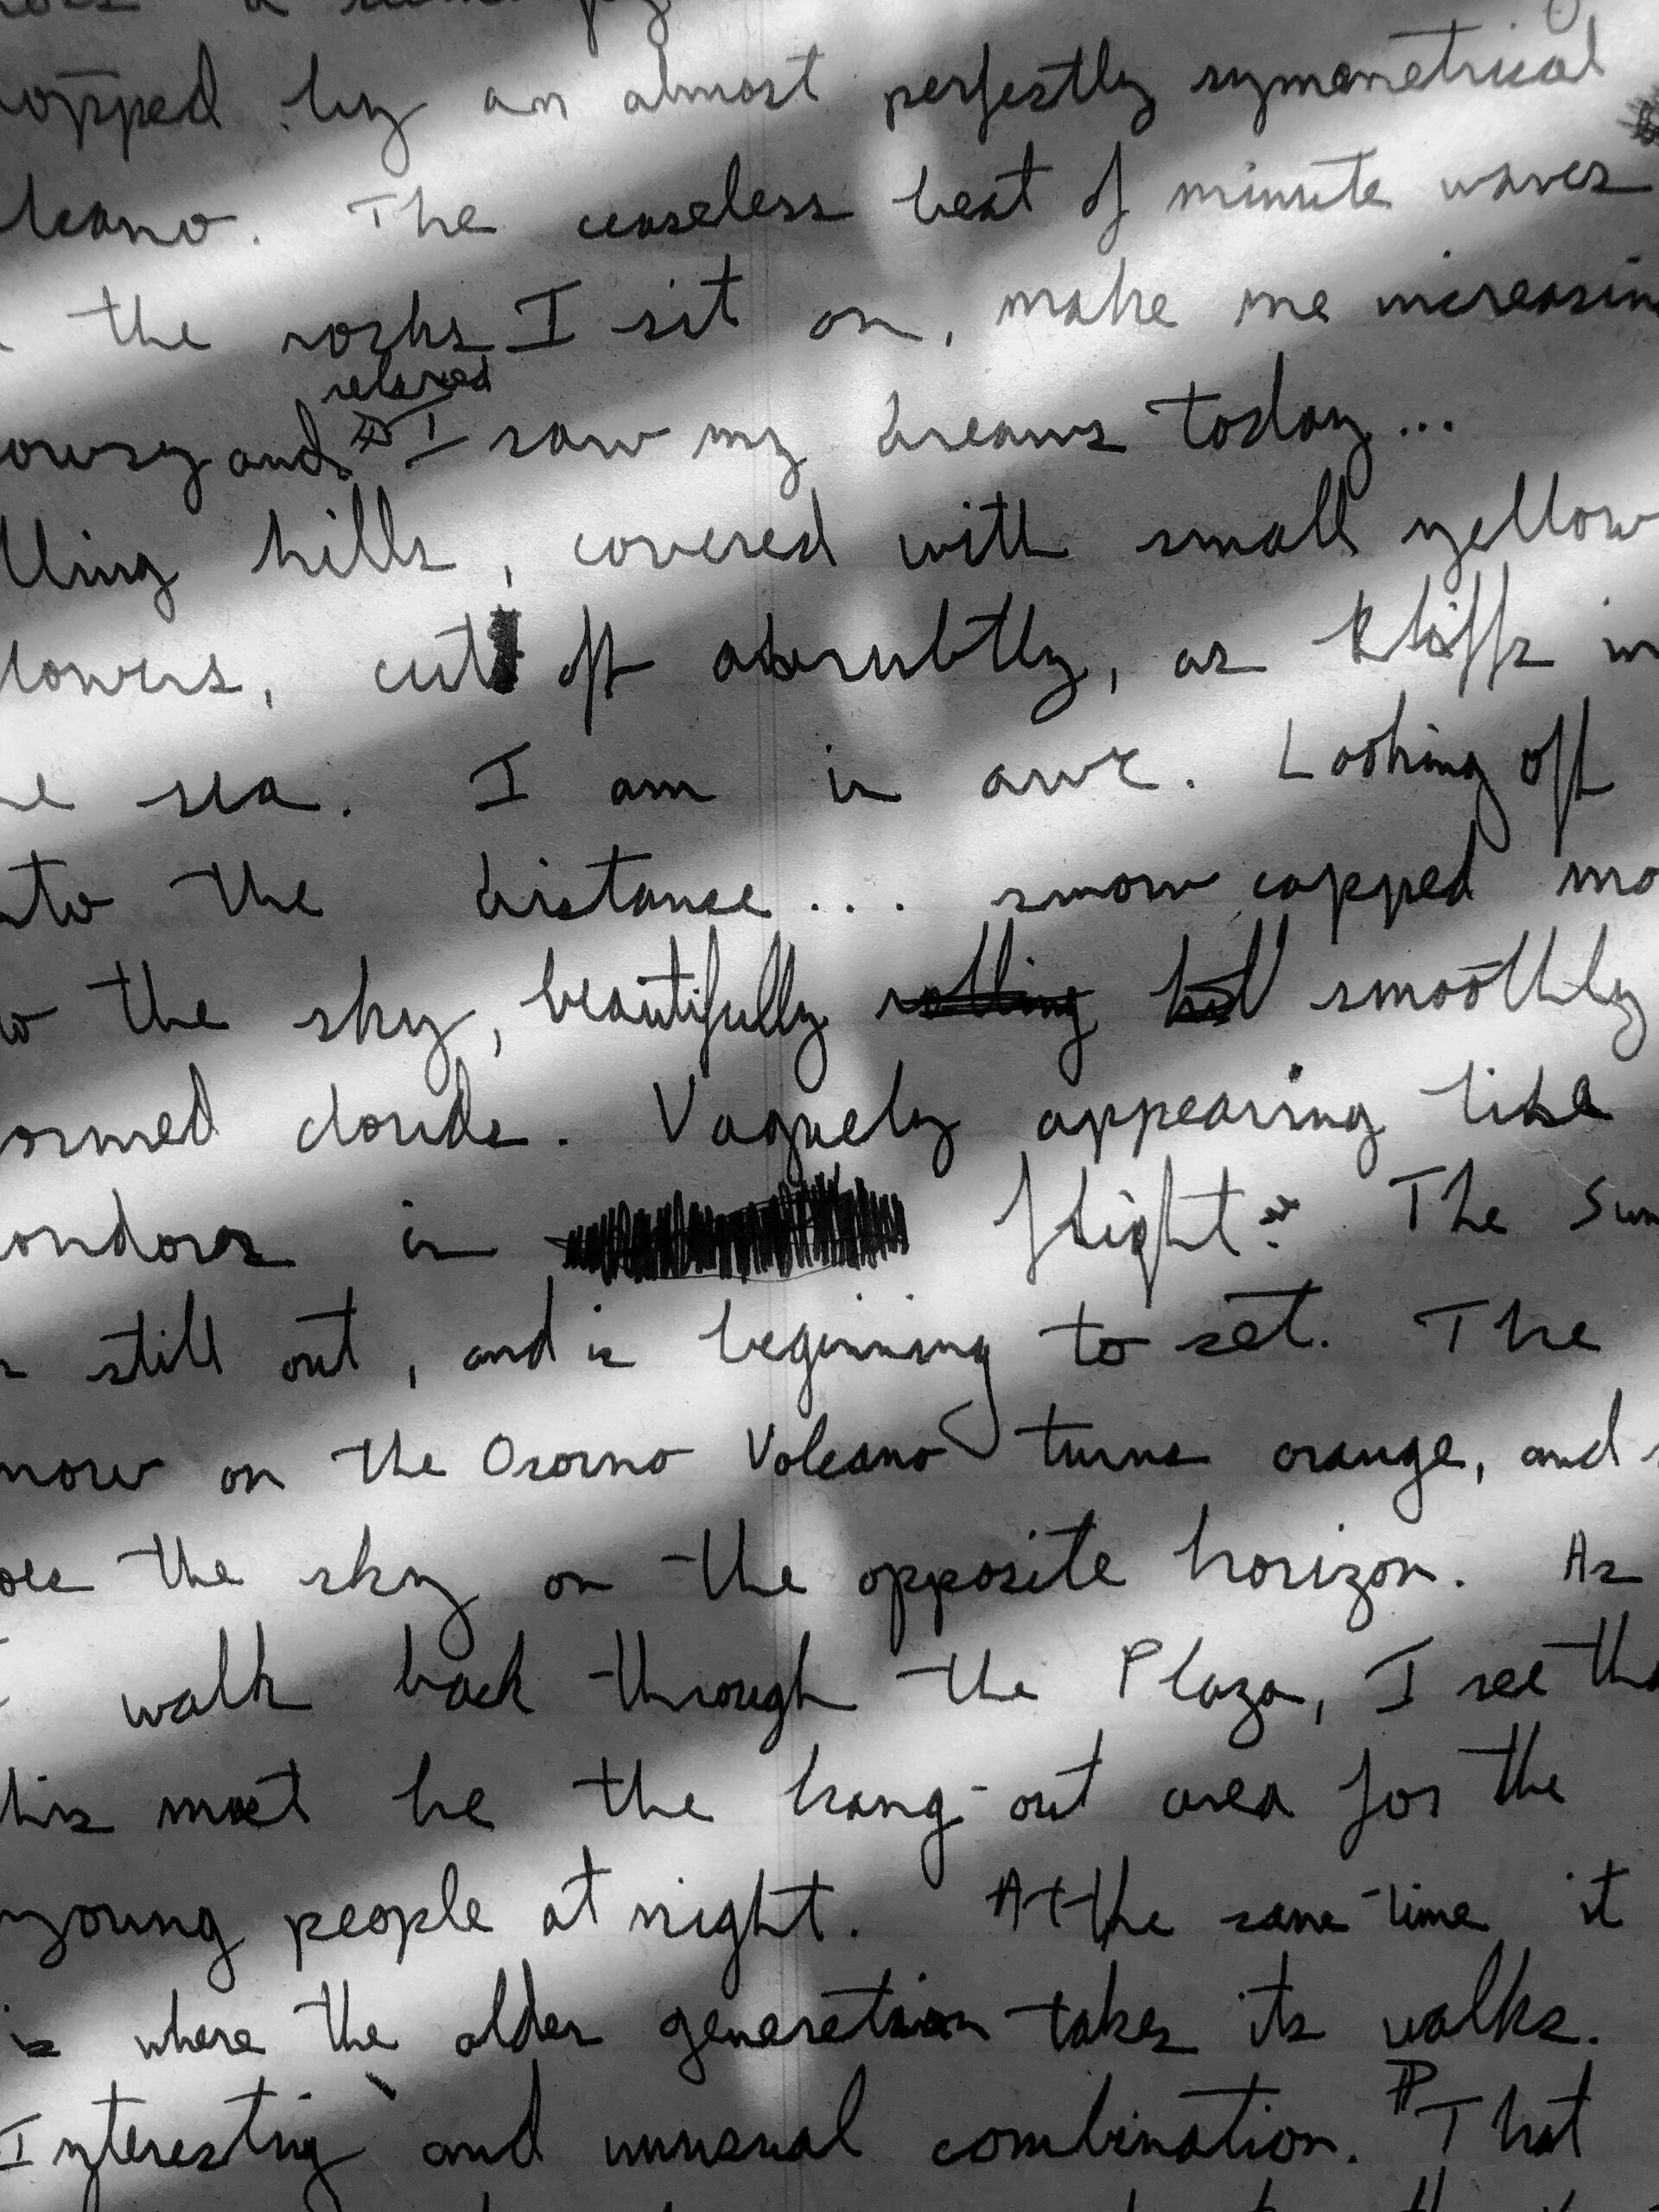 opped by an almost perfectly symmetrical
lcano. The ceaseless beat of minute waves
the rocks I sit on, make me increasin
relaxed
owsy and I saw my dreams today...
lling hills, covered with small yellow
lowers, cut off abrubtly, as kliffs in
e sea. I am in awe. Looking off
nto the distance... snow capped mo
o the sky, beautifully rolling hil smoothly
ormed clouds. Vaguely appearing like
ondors in flight. The Sun
s still out, and is beginning to set. The
now on the Osorno Volcano turns orange, and s
oes the sky on the opposite horizon. As
I walk back through the Plaza, I see tha
his must be the hang-out area for the
young people at night. At the same time it
is where the older generation takes its walks.
Interesting and unusual combination. That